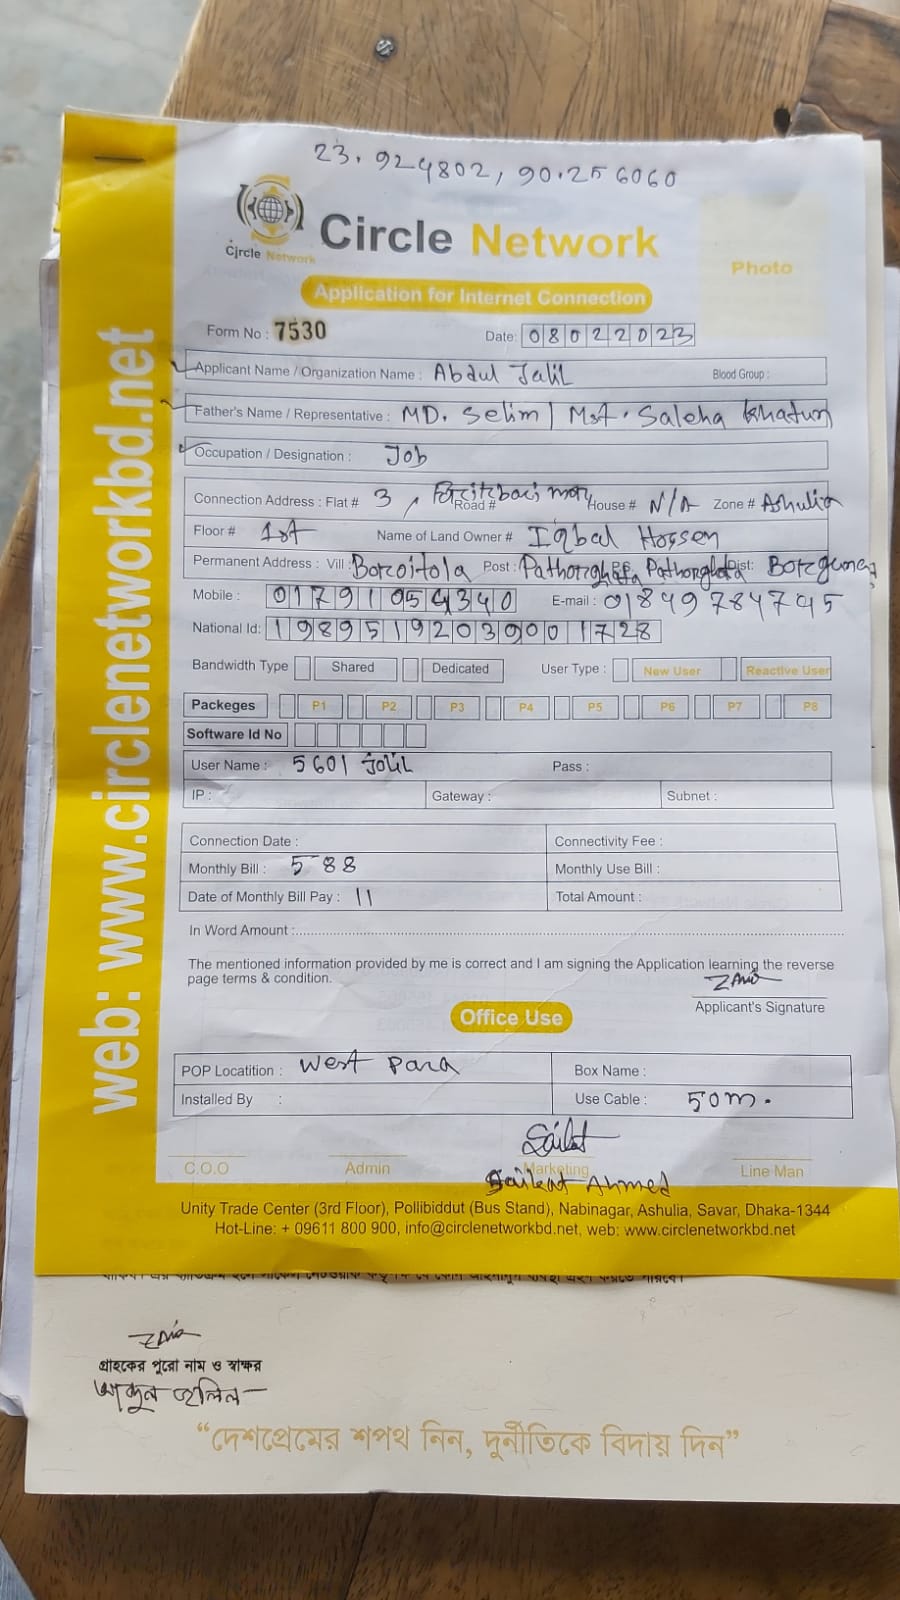 23.924802, 90.256060
Circle Network
Circle Network
Photo
Application for Internet Connection
Form No : 7530 Date: 08022023
Applicant Name / Organization Name : Abdul Jalil Blood Group :
Father's Name / Representative : MD. Selim / Mst. Saleha Khatun
Occupation / Designation : Job
Connection Address : Flat # 3, Road # House # N/A Zone # Ashulia
Floor # 1st Name of Land Owner # Iqbal Hossen
Permanent Address : Vill: Post : Dist:
Mobile : E-mail : 01849784795
National Id: 19895192039001728
Bandwidth Type Shared Dedicated User Type : New User Reactive User
Packeges P1 P2 P3 P4 P5 P6 P7 P8
Software Id No
User Name : 5601 Jolil Pass :
IP : Gateway : Subnet :
Connection Date : Connectivity Fee :
Monthly Bill : 588 Monthly Use Bill :
Date of Monthly Bill Pay : 11 Total Amount :
In Word Amount :
The mentioned information provided by me is correct and I am signing the Application learning the reverse
page terms & condition.
Applicant's Signature
Office Use
POP Locatition : West Para Box Name :
Installed By : Use Cable : 50m.
C.O.O Admin Marketing Line Man
Saikat Ahmed
Unity Trade Center (3rd Floor), Pollibiddut (Bus Stand), Nabinagar, Ashulia, Savar, Dhaka-1344
Hot-Line: + 09611 800 900, info@circlenetworkbd.net, web: www.circlenetworkbd.net
web: www.circlenetworkbd.net
গ্রাহকের পুরো নাম ও স্বাক্ষর
“দেশপ্রেমের শপথ নিন, দুর্নীতিকে বিদায় দিন”